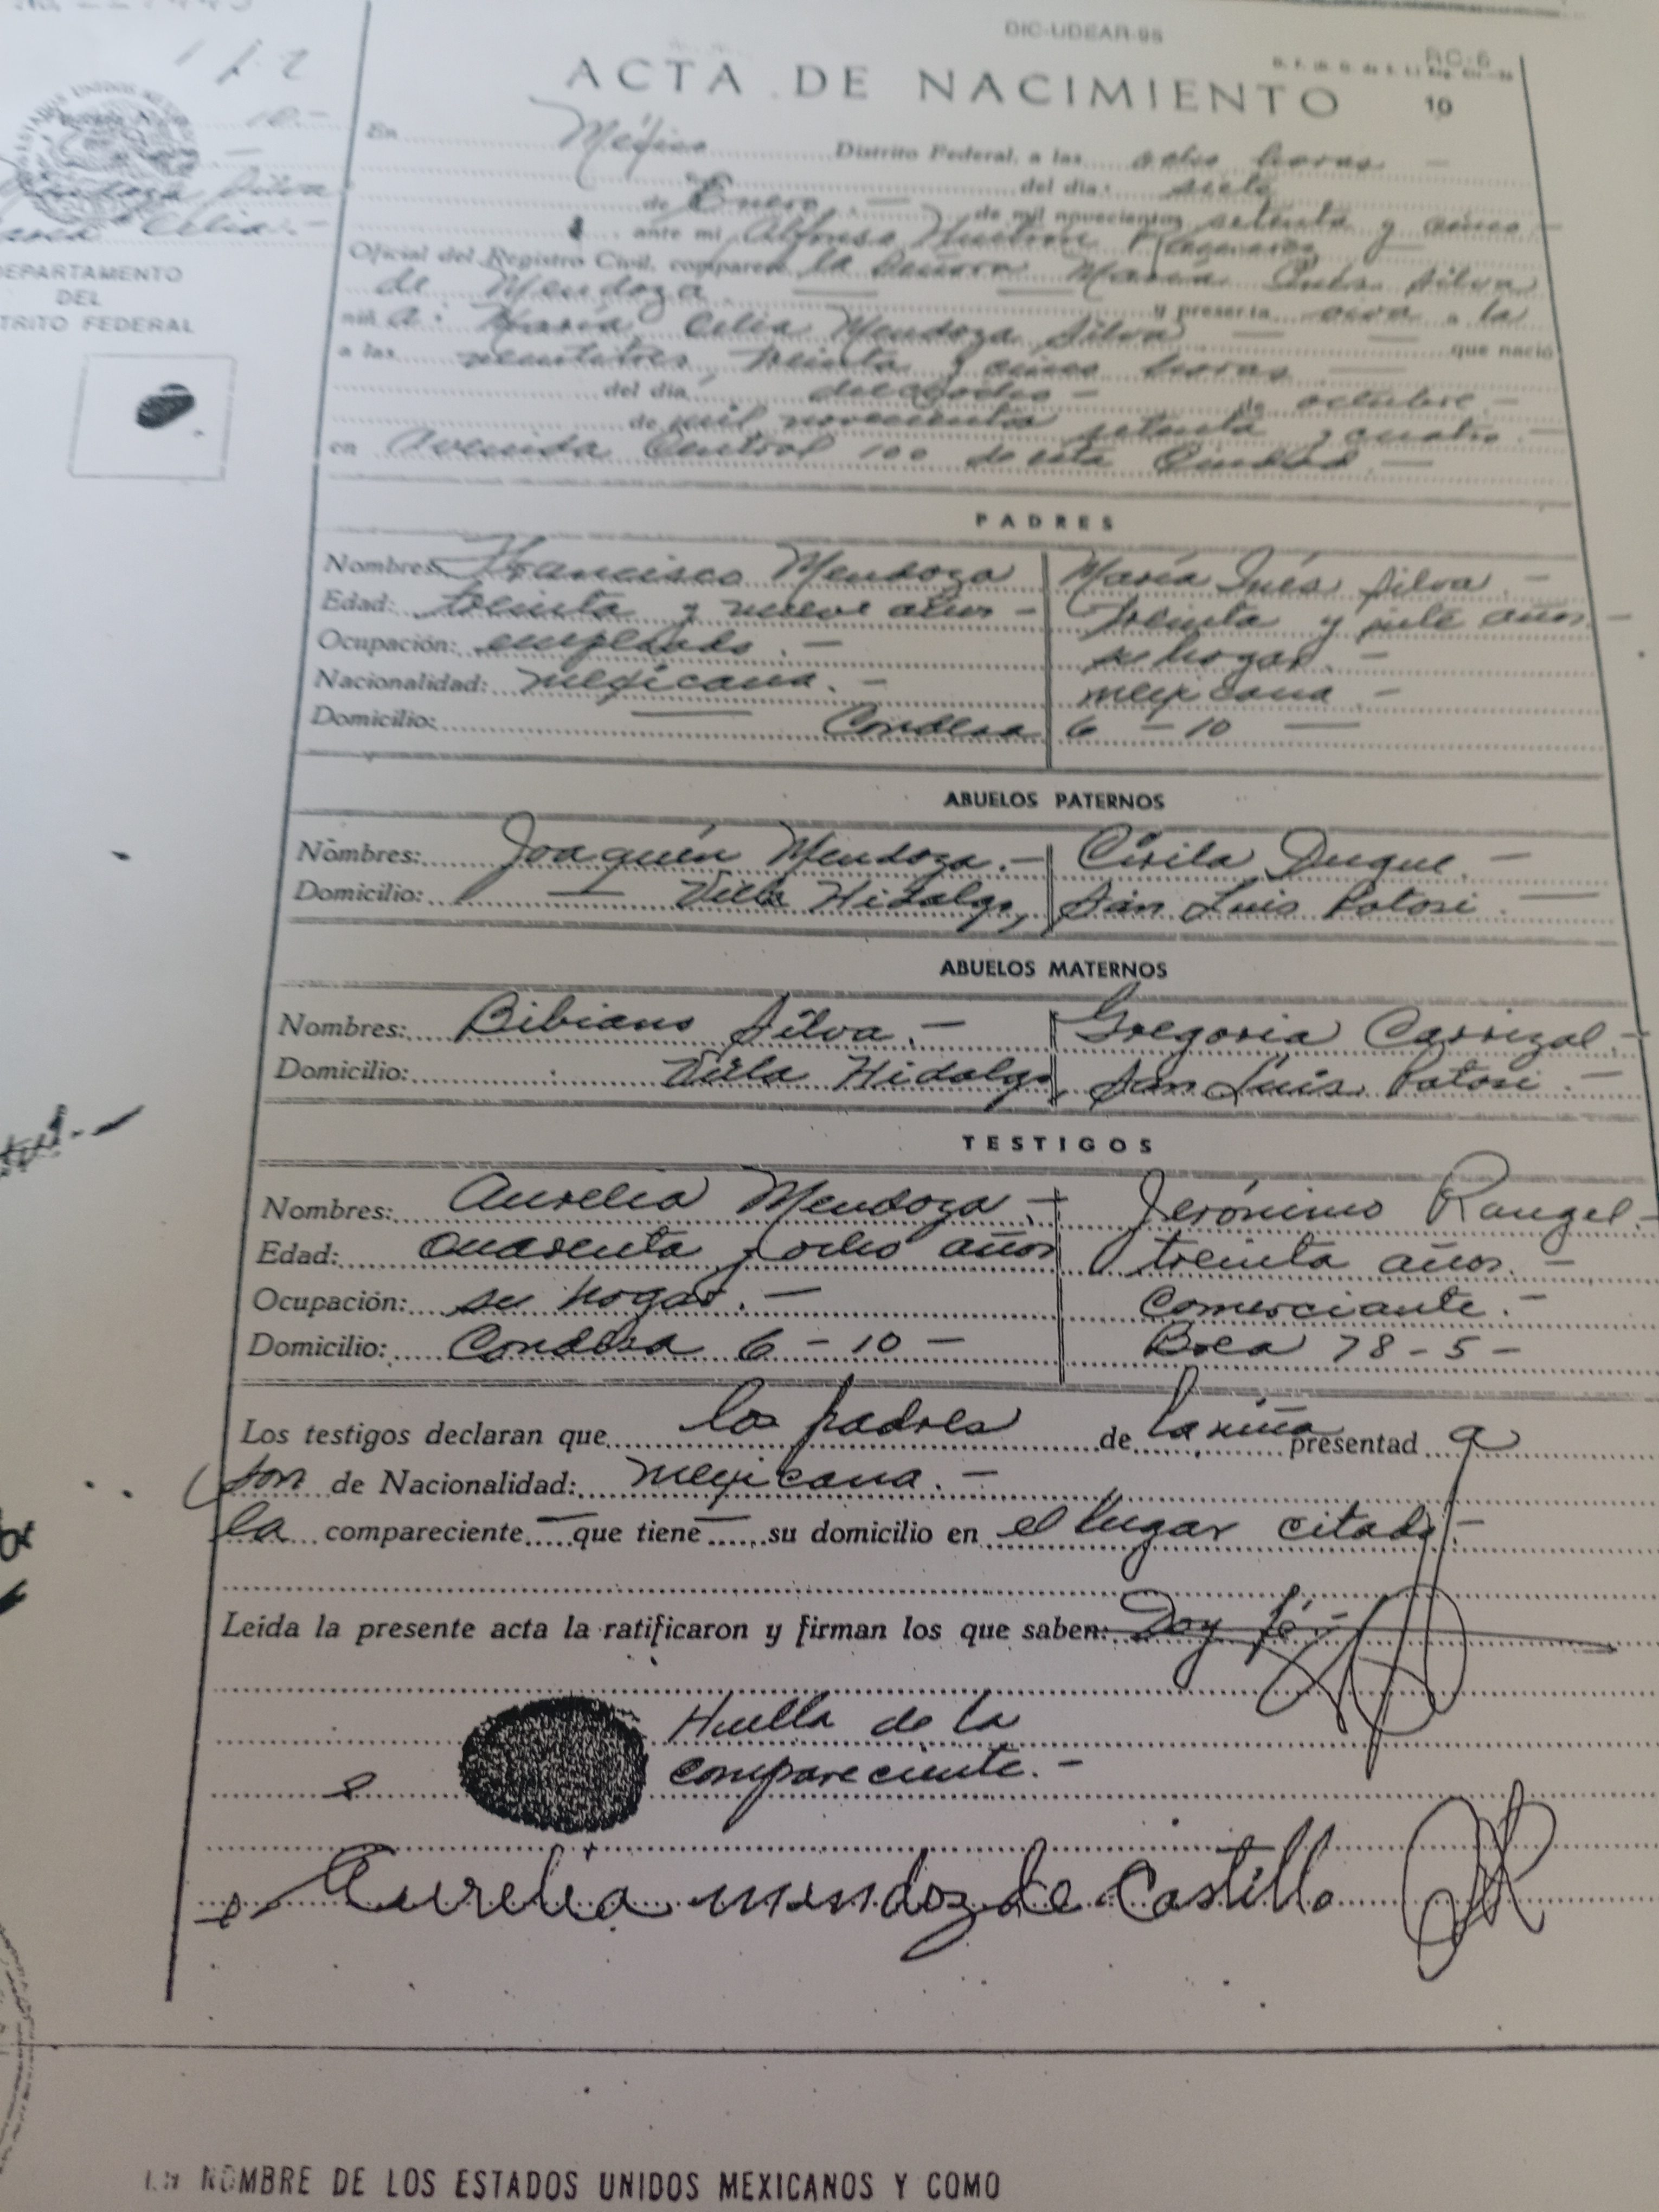 DIC-UDEAR-95
RC-6
ACTA DE NACIMIENTO 19
En México Distrito Federal, a las ocho horas —
del día: siete
de Enero. — de mil novecientos setenta y cinco —
ante mi Alfonso
Oficial del Registro Civil, comparece la Señora María Inés Silva
de Mendoza — — y presenta viva a la
niña: María Celia Mendoza Silva — — que nació
a las veintitres treinta y cinco horas. —
del día dieciocho – de octubre. –
de mil novecientos setenta y cuatro. —
en Avenida Central 100 de esta Ciudad. —
Mendoza Silva
Celia. –
DEPARTAMENTO
DEL
TRITO FEDERAL
PADRES
Nombres: Francisco Mendoza María Inés Silva. –
Edad: treinta y nueve años – treinta y siete años. –
Ocupación: empleado. – su hogar. –
Nacionalidad: mexicana. – mexicana –
Domicilio: — Condesa 6 – 10 —
ABUELOS PATERNOS
Nombres: Joaquín Mendoza. – Cirila Duque. –
Domicilio: — Villa Hidalgo, San Luis Potosi. —
ABUELOS MATERNOS
Nombres: Bibiano Silva. – Gregoria Carrizal. –
Domicilio: Villa Hidalgo, San Luis Potosi. –
TESTIGOS
Nombres: Aurelia Mendoza. – Jerónimo Rangel. –
Edad: cuarenta y ocho años treinta años. –
Ocupación: su hogar. – Comerciante. –
Domicilio: Condesa 6 – 10 – Boca 78 – 5 –
Los testigos declaran que los padres de la niña presentad a
son de Nacionalidad: mexicana. –
la compareciente — que tiene — su domicilio en el lugar citado –
Leida la presente acta la ratificaron y firman los que saben: Doy fé. –
Huella de la
compareciente. –
Aurelia mendoz de Castillo
EN NOMBRE DE LOS ESTADOS UNIDOS MEXICANOS Y COMO